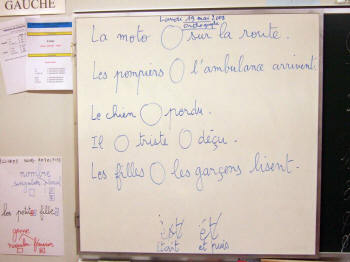 GAUCHE
Lundi 19 mai 2008
Orthographe
La moto ◯ sur la route.
Les pompiers ◯ l'ambulance arrivent.
Le chien ◯ perdu.
Il ◯ triste ◯ déçu.
Les filles ◯ les garçons lisent.
est et
était et puis
nombre
singulier pluriel
les petites filles
genre
masculin féminin